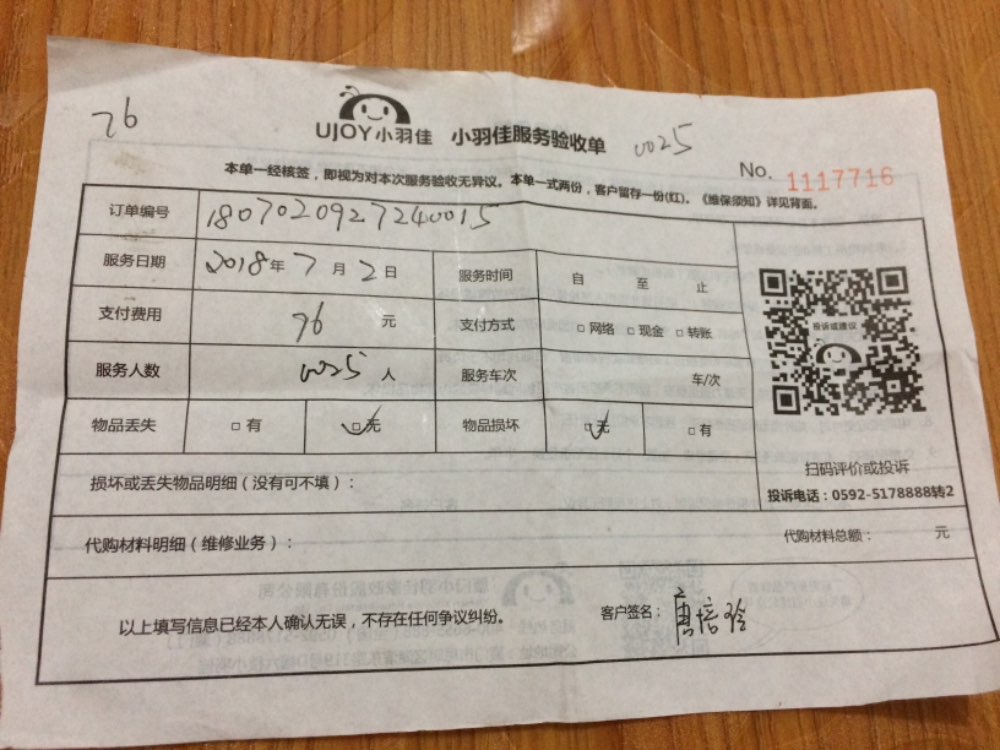 76
UJOY小羽佳 小羽佳服务验收单 0025
No. 1117716
本单一经核签，即视为对本次服务验收无异议。本单一式两份，客户留存一份(红)。《维保须知》详见背面。
订单编号 1807020927240015
服务日期 2018年7月2日 服务时间 自 至 止
支付费用 76 元 支付方式 □ 网络 □ 现金 □ 转账
投诉或建议
服务人数 0025 人 服务车次 车/次
物品丢失 □ 有 □ 无 物品损坏 □ 无 □ 有
扫码评价或投诉
损坏或丢失物品明细（没有可不填）：
投诉电话：0592-5178888转2
代购材料明细（维修业务）： 代购材料总额： 元
以上填写信息已经本人确认无误，不存在任何争议纠纷。 客户签名：唐培玲